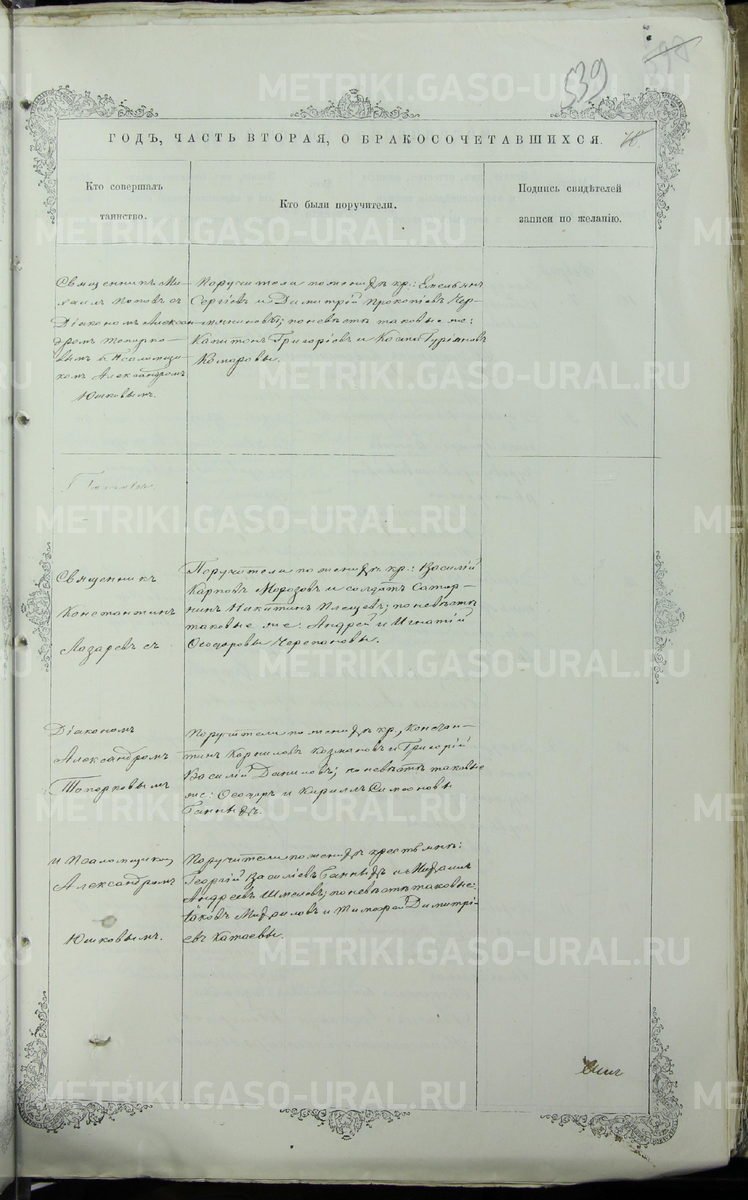 539
ГОДЪ, ЧАСТЬ ВТОРАЯ, О БРАКОСОЧЕТАВШИХСЯ.
Кто совершалъ
таинство.
Кто были поручители.
Подпись свидѣтелей
записи по желанію.
Священникъ Ми-
хаилъ Поповъ съ
Діакономъ Алексан-
дромъ Топорко-
вымъ и Псаломщи-
комъ Александромъ
Юшковымъ.
Поручители по женихѣ кр.: Емельянъ
Сергіевъ и Димитрій Прокопіевъ Чер-
по невѣстѣ таковые же:
Капитонъ Григоріевъ и Косма Гуріяновъ
Комаровы.
Священникъ
Константинъ
Лазаревъ съ
Поручители по женихѣ кр.: Василій
Карповъ Морозовъ и солдатъ Сатор-
нинъ Никитинъ Плещевъ; по невѣстѣ
таковые же: Андрей и Игнатій
Ѳеодоровы Черепановы.
Діакономъ
Александромъ
Топорковымъ
Поручители по женихѣ кр., Констан-
тинъ Корниловъ Козмановъ и Григорій
Василій Даниловъ; по невѣстѣ таковые
же: Ѳеодоръ и Кириллъ Симеоновы
и Псаломщикомъ
Александромъ
Юшковымъ.
Поручители по женихѣ крестьяне:
Георгій Василіевъ и Михаилъ
Андреевъ Шмелевъ; по невѣстѣ таковые:
Іаковъ Михаиловъ и Тимофей Димитрі-
евъ Катаевы.
METRIKI.GASO-URAL.RU